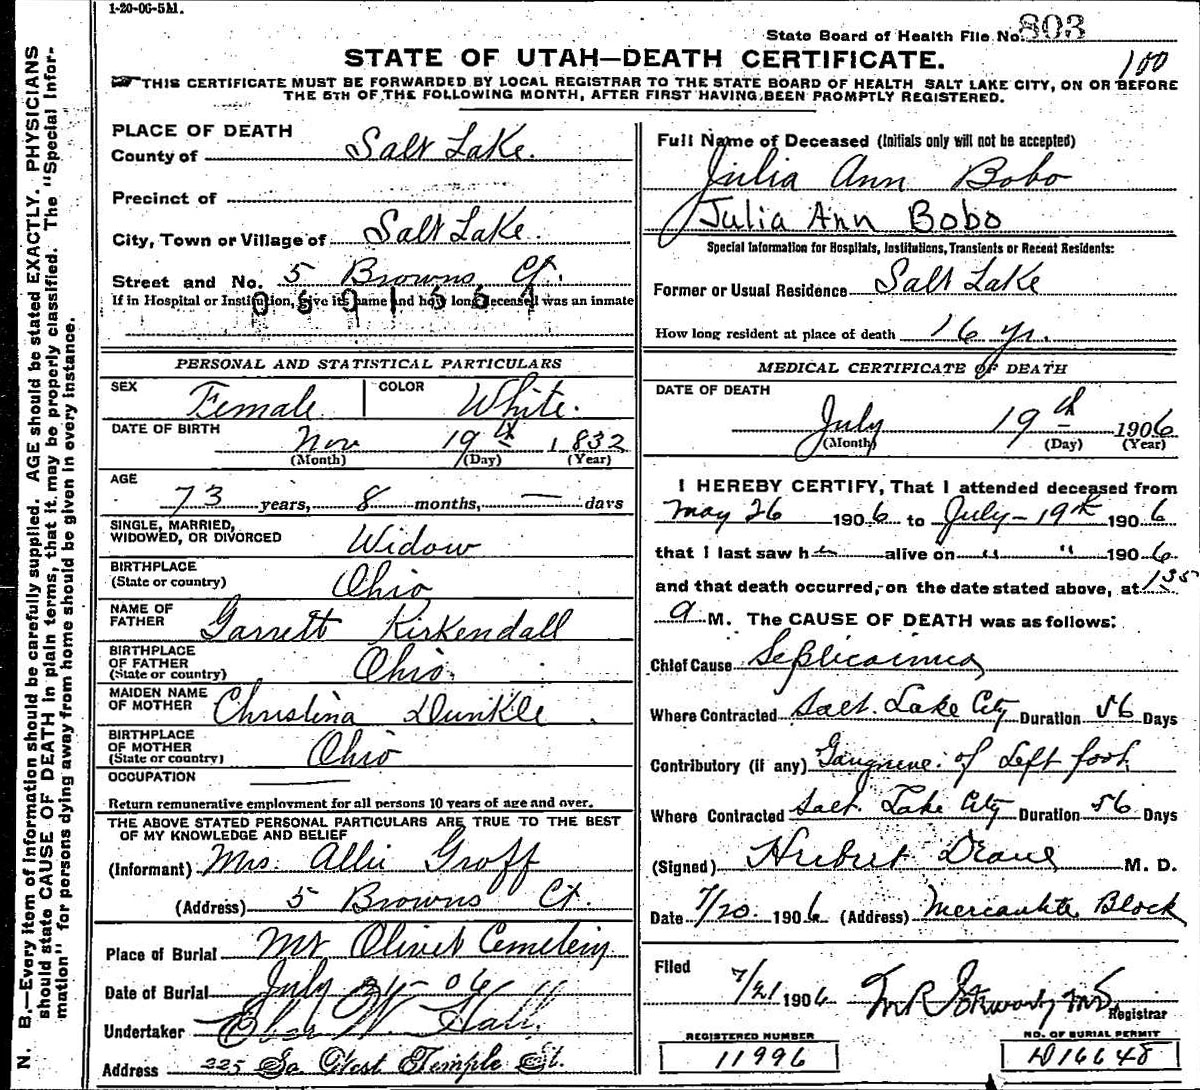 1-20-06-5M.
State Board of Health File No. 803
STATE OF UTAH—DEATH CERTIFICATE.
100
THIS CERTIFICATE MUST BE FORWARDED BY LOCAL REGISTRAR TO THE STATE BOARD OF HEALTH SALT LAKE CITY, ON OR BEFORE
THE 5TH OF THE FOLLOWING MONTH, AFTER FIRST HAVING BEEN PROMPTLY REGISTERED.
N. B.—Every item of information should be carefully supplied. AGE should be stated EXACTLY. PHYSICIANS
should state CAUSE OF DEATH in plain terms, that it may be properly classified. The "Special Infor-
mation" for persons dying away from home should be given in every instance.
PLACE OF DEATH
County of Salt Lake.
Precinct of
City, Town or Village of Salt Lake.
Street and No. 5 Browns Ct.
If in Hospital or Institution, give its name and how long deceased was an inmate
PERSONAL AND STATISTICAL PARTICULARS
SEX Female COLOR White.
DATE OF BIRTH Nov 19th 1832
(Month) (Day) (Year)
AGE
73 years, 8 months, — days
SINGLE, MARRIED,
WIDOWED, OR DIVORCED Widow
BIRTHPLACE
(State or country) Ohio
NAME OF
FATHER Garrett Kirkendall
BIRTHPLACE
OF FATHER
(State or country) Ohio.
MAIDEN NAME
OF MOTHER Christina Dunkle
BIRTHPLACE
OF MOTHER
(State or country) Ohio
OCCUPATION
Return remunerative employment for all persons 10 years of age and over.
THE ABOVE STATED PERSONAL PARTICULARS ARE TRUE TO THE BEST
OF MY KNOWLEDGE AND BELIEF
(Informant) Mrs. Allie Groff
(Address) 5 Browns Ct.
Place of Burial Mt Olivet Cemetery
Date of Burial July 06
Undertaker Eber W. Hall.
Address 225 So West Temple St.
Full Name of Deceased (Initials only will not be accepted)
Julia Ann Bobo
Julia Ann Bobo
Special Information for Hospitals, Institutions, Transients or Recent Residents:
Former or Usual Residence Salt Lake
How long resident at place of death 16 yr.
MEDICAL CERTIFICATE OF DEATH
DATE OF DEATH
July 19th 1906
(Month) (Day) (Year)
I HEREBY CERTIFY, That I attended deceased from
May 26 1906 to July - 19th 1906
that I last saw her alive on " " 1906
and that death occurred, on the date stated above, at 1 35
a M. The CAUSE OF DEATH was as follows:
Chief Cause Septicaimia
Where Contracted Salt Lake City Duration 56 Days
Contributory (if any) Gangrene of Left foot
Where Contracted Salt Lake City Duration 56 Days
(Signed) Hubert Deane M. D.
Date 7/20 1906 (Address) Mercantile Block
Filed 7/21 1906
Registrar
REGISTERED NUMBER
11996
NO. OF BURIAL PERMIT
D16648